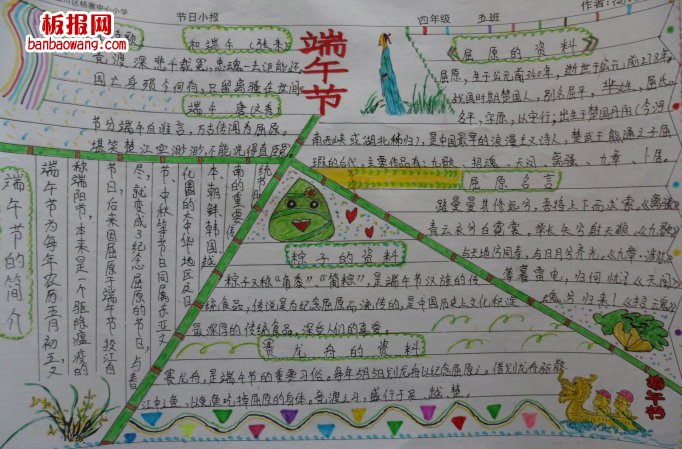 板报网
banbaowang.com
中心小学
节日小报
四年级 五班
作者:
和端午(张耒)
竞渡深悲千载冤,忠魂一去讵能还。
国亡身殒今何有,只留离骚在世间。
端午 唐(文秀)
节分端午自谁言,万古传闻为屈原。
堪笑楚江空渺渺,不能洗得直臣冤。
端午节
《屈原的资料》
屈原,生于公元前340年,逝世于公元前278年,
战国时期楚国人,别名屈平,芈姓,屈氏,
名平,字原,以字行;出生于楚国丹阳(今河
南西峡或湖北秭归),是中国最早的浪漫主义诗人,楚武王熊通之子屈
瑕的后代,主要作品为:九歌、招魂、天问、离骚、九章、卜居。
屈原名言
路曼曼其修远兮,吾将上下而求索《离骚》
青云衣兮白霓裳,举长矢兮射天狼《九歌》
与天地兮同寿,与日月兮齐光《九章·涉江》
薄暮雷电,归何忧?《天问》
魂兮归来!《招魂》
端午节的简介
端午节为每年农历五月初五,又
称端阳节,本来是一个驱除瘟疫的
节日,后来因屈原于端午节投江自
尽,就变成了纪念屈原的节日,与春
节、中秋等节日同属东亚文
化圈的大中华地区及日
本、朝鲜、韩国、越
南的重要传
统节日
粽子的资料
粽子又称“角黍”“筒粽”,是端午节汉族的传
统食品,传说是为纪念屈原而流传的,是中国历史上文化积淀
最深厚的传统食品,深受人们的喜爱。
赛龙舟的资料
赛龙舟,是端午节的重要习俗。每年5月5日划龙舟以纪念屈原。借划龙舟驱散
江中之鱼,以免鱼吃掉屈原的身体。竞渡之习,盛行于吴、越、楚。
端午节